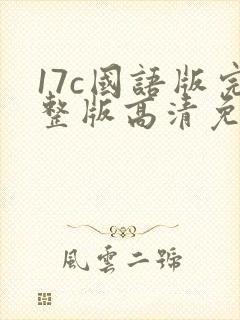 17c國語版完
整版高清免
風雲二號